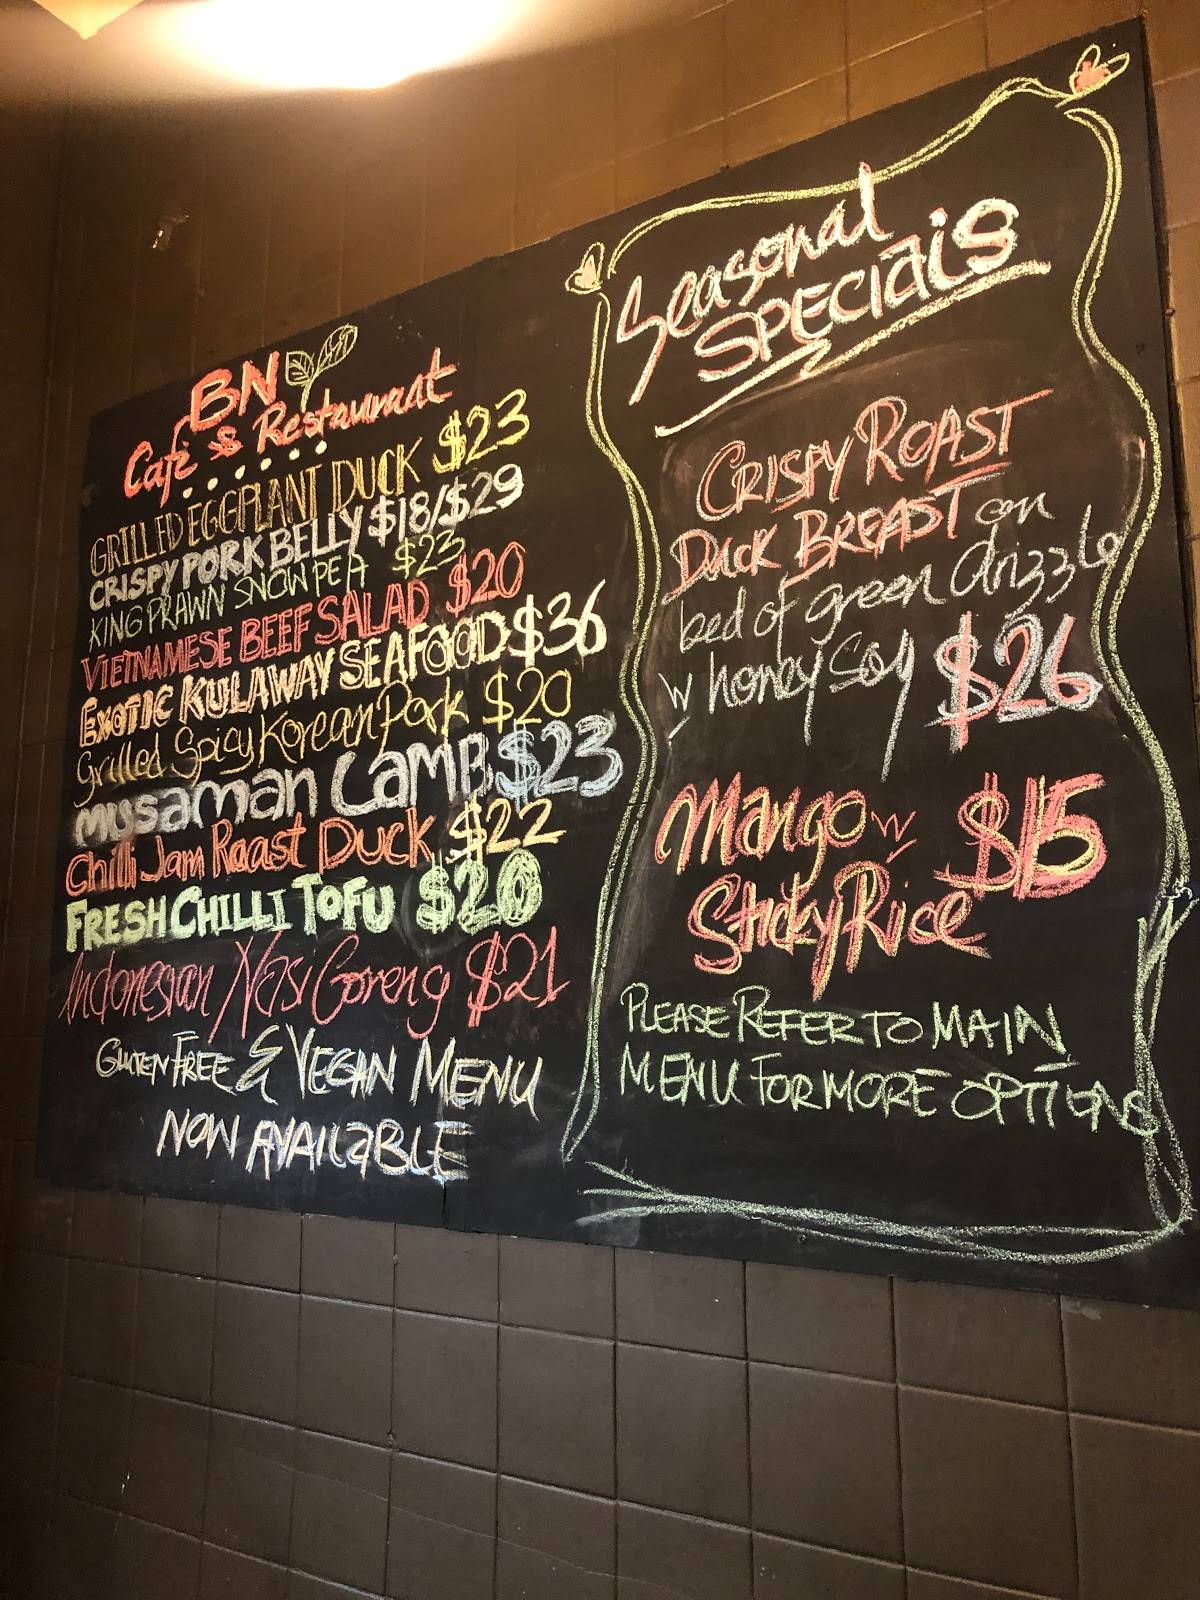 BN
Cafe & Restaurant
GRILLED EGGPLANT DUCK $23
CRISPY PORK BELLY $18/$29
KING PRAWN SNOW PEA $23
VIETNAMESE BEEF SALAD $20
EXOTIC KULAWAY SEAFOOD $36
Grilled Spicy Korean Pork $20
MUSAMAN LAMB $23
Chilli Jam Roast Duck $22
FRESH CHILLI TOFU $20
Indonesian Nasi Goreng $21
GLUTEN FREE & VEGAN MENU
NOW AVAILABLE
Seasonal
SPECIALS
CRISPY ROAST
DUCK BREAST on
bed of green drizzle
w honey soy $26
Mango w $15
Sticky Rice
PLEASE REFER TO MAIN
MENU FOR MORE OPTIONS